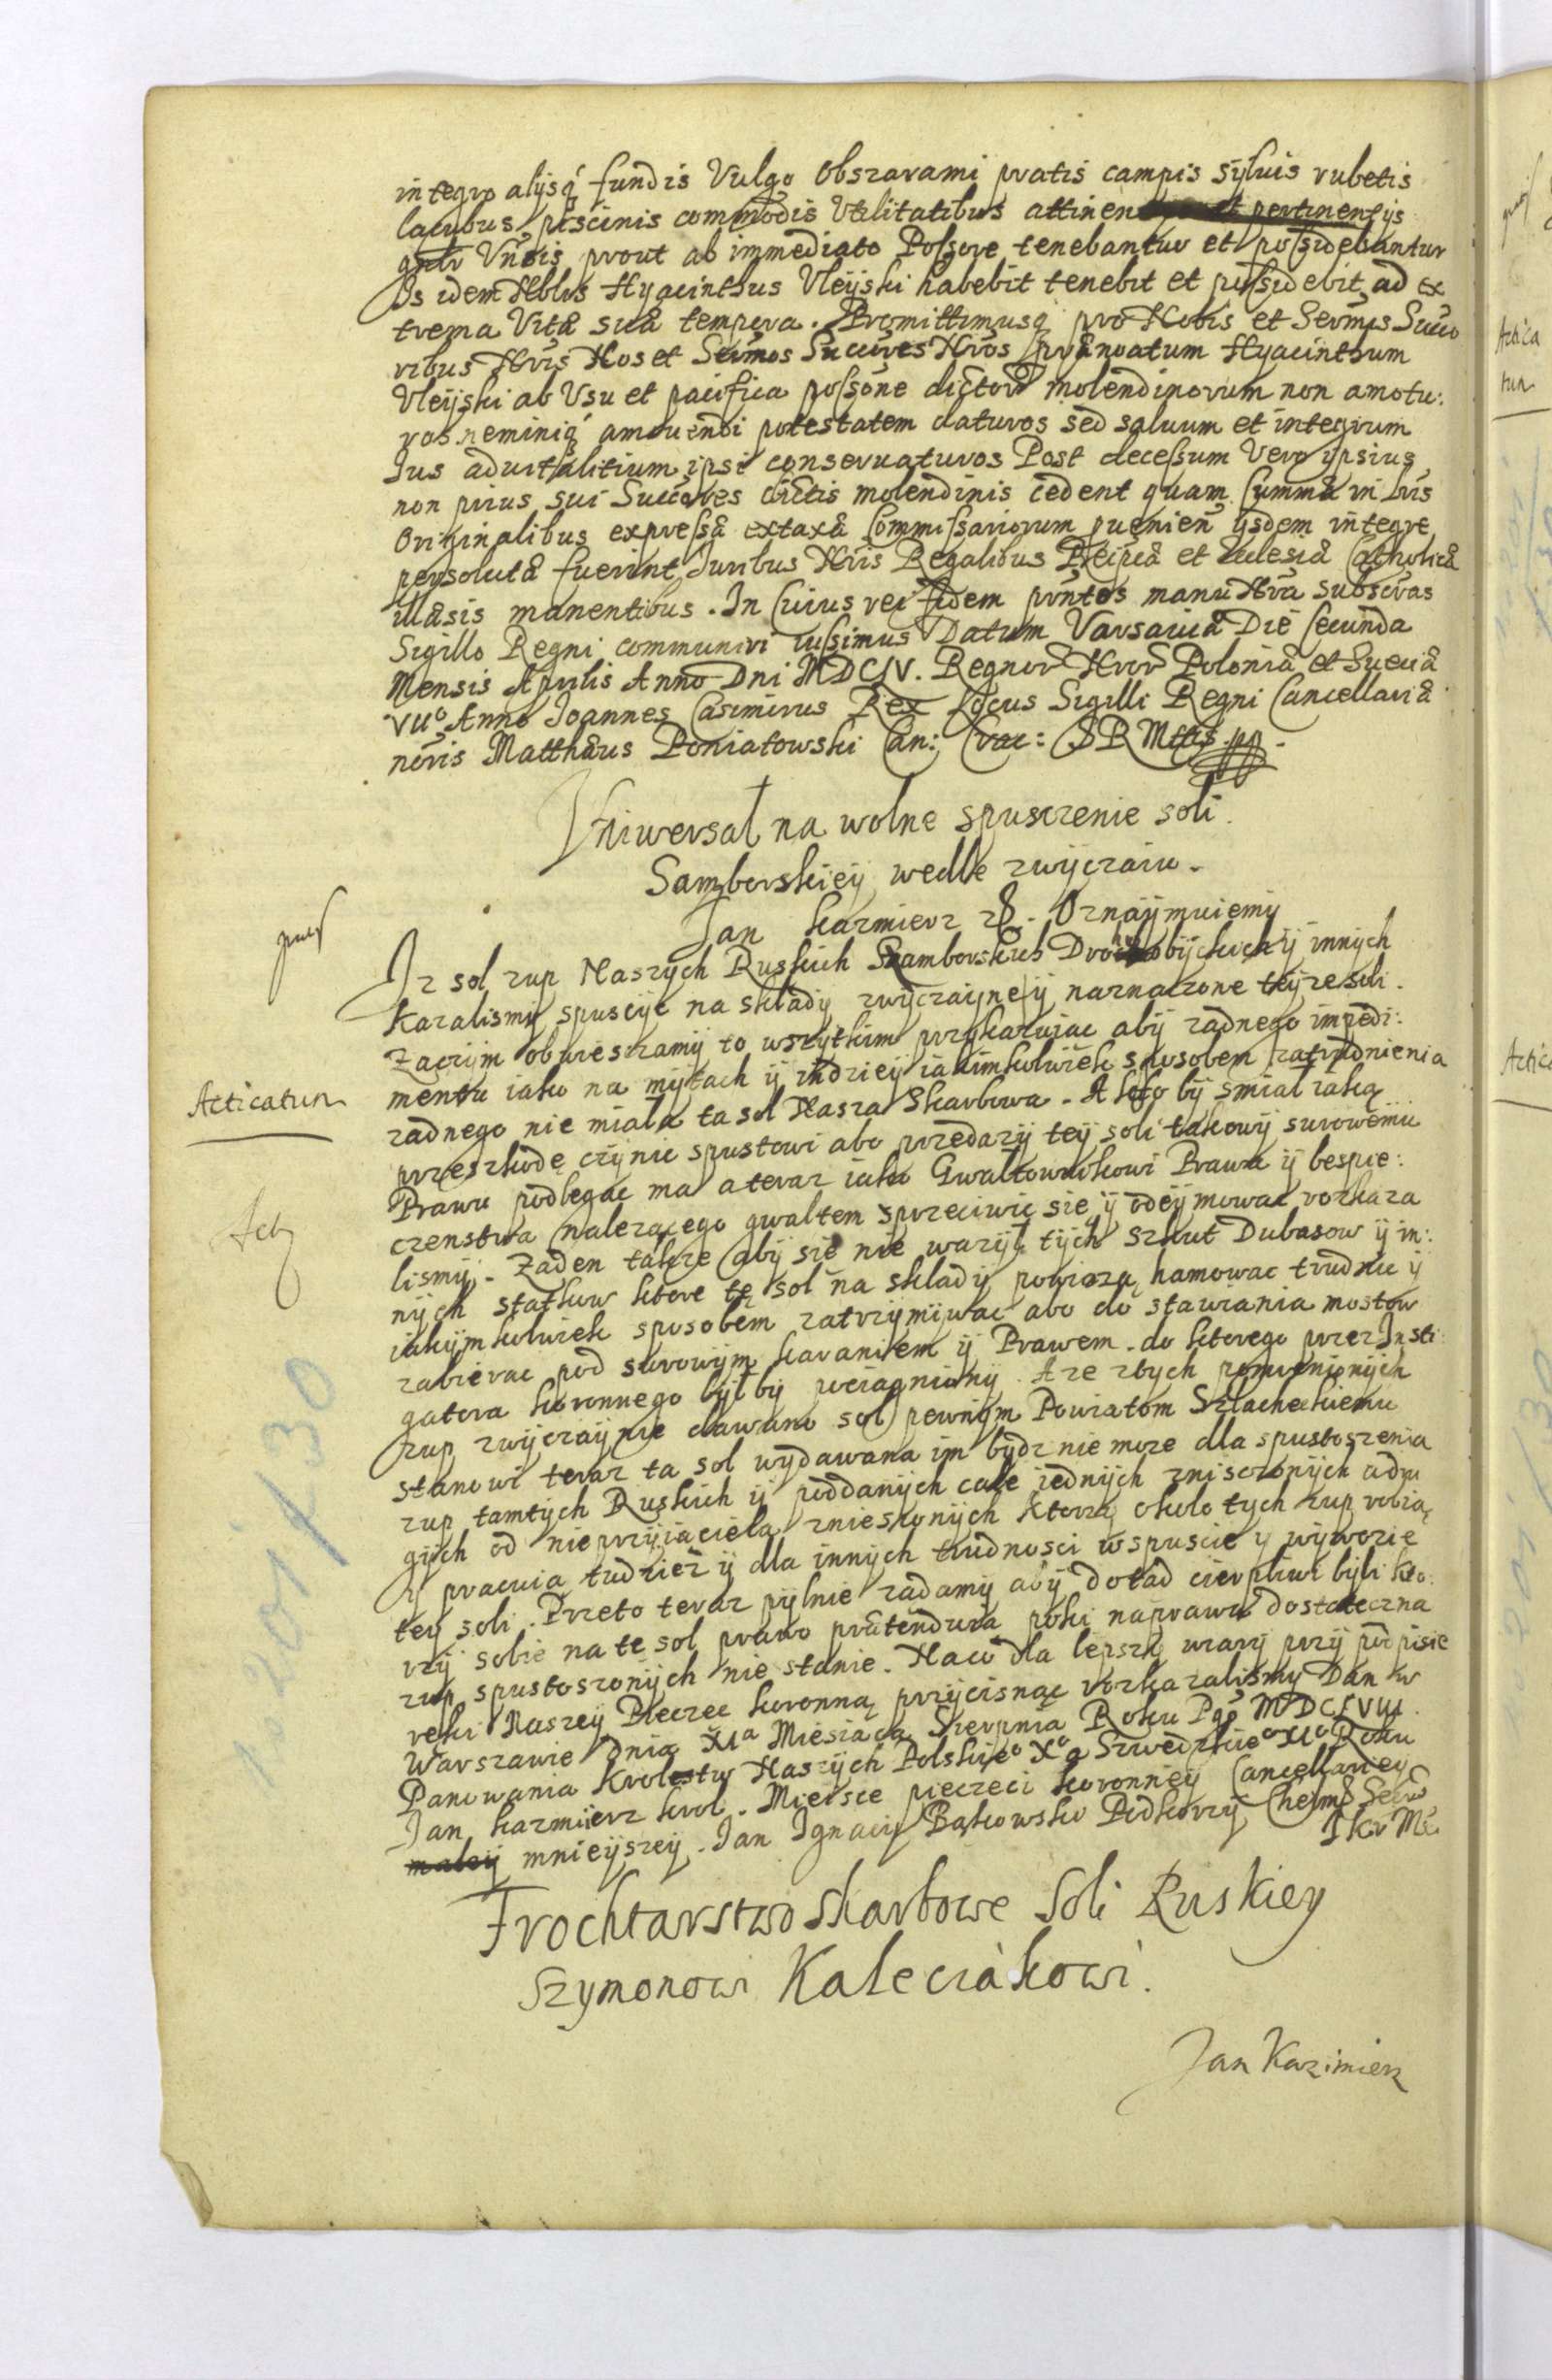 integro alijsq́ fundis Vulgo Obszarami pratis campis syluis rubetis
lacubus, piscinis commodis Vtilitatibus attinen et pertinensijs
gnlr Vnsis prout ab immediato Possore tenebantur et possidebantur
idem Nblis Hyacinthus Vleijski habebit tenebit et possidebit, ad ex
trema Vitæ suæ tempora. Promittimusq́ pro Nobis et Sermis Succo
ribus Nris Nos et Sermos Succores Nros prænoatum Hyacinthum
Vleijski ab Vsu et pacifica possone dictor molendinorum non amotu:
ros neminiq́ amouendi potestatem daturos sed saluum et integrum
Ius aduitalitium ipsi conseruaturos Post decessum Vero ipsius
non prius sui Succores dictis molendinis cedent quam summæ in Lris
Originalibus expressæ ex taxa Commissariorum puenien ijsdem integre
persolutæ fuerint Juribus Nris Regalibus Reipcæ et Ecclesiæ Catholicæ
illæsis manentibus. In Cuius rei fidem pntes manu Nra subscras
Sigillo Regni communiri iussimus Datum Varsauiæ Die secunda
Mensis Aprilis Anno Dni MDCLV. Regnor Nror Poloniæ et Sueciæ
VII° Anno Joannes Casimirus Rex Locus Sigilli Regni Cancellariæ
noris Matthæus Poniatowski Can: Crac: S R Mttis. pp
Vniwersał na wolne spusczenie soli
Samborskieij wedle zwijczaiu.
Jan Kazmierz zc. Oznaijmuiemij
Jz sol zup Naszijch Ruskich Samborskich Drohobijckich ij innijch
Kazalismij spuscijc na składij zwijczaijne ij naznaczone teijze soli.
Zaczijm obwieszczamij to wszijtkim przijkazuiąc abij zadnego impedi:
mentu iako na mijtach ij indzieij iakimkolwiek sposobem zatrudnienia
zadnego nie miała ta sol Nasza Skarbowa. A kto bij smiał iaką
przeszkodę czijnic spustowi abo przedazij teij soli takowij surowemu
Prawu podlegac ma a teraz iako Gwałtownikowi Prawa ij bespie:
czenstwa nalezącego gwałtem sprzeciwic się ij odeijmowac rozkaza
lismij. Zaden takze abij się nie wazijł tijch szkut Dubasow ij in:
nijch statkow ktore tę sol na składij powiozą hamowac trudnic ij
iakijmkolwiek sposobem zatrzijmijwac abo do stawiania mostow
zabierac pod surowijm karaniem ij Prawem do ktorego przez Insti:
gatora koronnego bijłbij pociągnionij. A ze ztych pomienionijch
zup zwijczaijnie dawano sol pewnijm Powiatom Szlacheckiemu
stanowi teraz ta sol wydawana im bydz nie moze dla spustoszenia
zup tamtijch Ruskich ij poddanijch cale iednijch zniszczonijch a dru
gijch od nieprzijiaciela zniesionijch ktorzij około tijch zup robią
ij pracuią tudziez ij dla innijch trudnosci w spuscie y wijwozie
teij soli. Przeto teraz pijlnie ządamij abij dotąd cierpliwi bijli kto:
rzij sobie na te sol prawo prætenduią poki naprawa dostateczna
zup spustoszonijch nie stanie. Na co dla lepszeij wiarij przij podpisie
ręki Naszeij Pieczec koronną przijcisnąc rozkazalismij Dan w
Warszawie Dnia XIa Miesiąca Sierpnia Roku Pgo MDCLVIII.
Panowania Krolestw Naszijch Polskie° X° a Szwedzkie° XI° Roku
Jan Kazmierz krol. Mieisce pieczęci koronneij Cancellarieij
mnieijszeij. Jan Ignacij Bąkowski Podkorzij Chełm: Secr
J Kr Mci
Frochtarstwo skarbowe Soli Ruskiey
Szymonowi Kaleciakowi.
Jan Kazimierz
Acticatum
Act